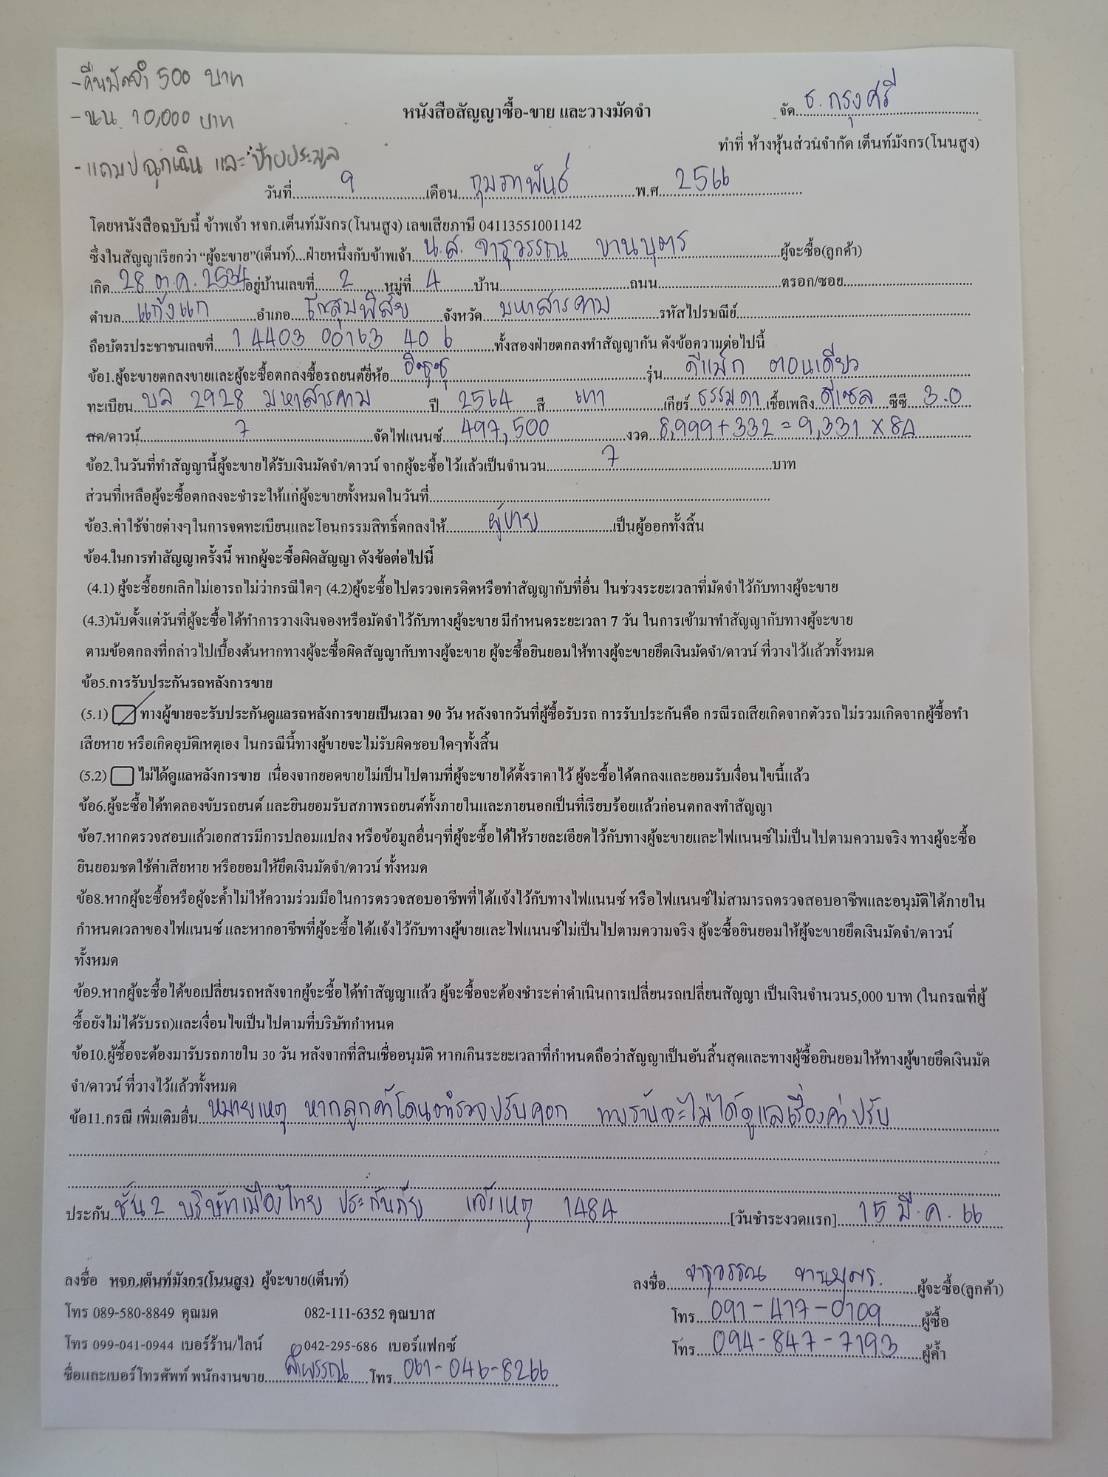 -คืนมัดจำ 500 บาท
-นน. 10,000 บาท
-แถมปลุกเฉิน และ ป้ายประมูล
จัด ธ. กรุงศรี
หนังสือสัญญาซื้อ-ขาย และวางมัดจำ
ทำที่ ห้างหุ้นส่วนจำกัด เต็นท์มังกร(โนนสูง)
วันที่ 9 เดือน กุมภาพันธ์ พ.ศ 2566
โดยหนังสือฉบับนี้ ข้าพเจ้า หจก.เต็นท์มังกร(โนนสูง) เลขเสียภาษี 04113551001142
ซึ่งในสัญญาเรียกว่า "ผู้จะขาย"(เต็นท์)...ฝ่ายหนึ่งกับข้าพเจ้า น.ส. จารุวรรณ ขานบุตร ผู้จะซื้อ(ลูกค้า)
เกิด 28 ต.ค. 2534 อยู่บ้านเลขที่ 2 หมู่ที่ 4 บ้าน ถนน ตรอก/ซอย
ตำบล แก้งแก อำเภอ โกสุมพิสัย จังหวัด มหาสารคาม รหัสไปรษณีย์
ถือบัตรประชาชนเลขที่ 1 4403 00163 40 6 ทั้งสองฝ่ายตกลงทำสัญญากัน ดังข้อความต่อไปนี้
ข้อ1.ผู้จะขายตกลงขายและผู้จะซื้อตกลงซื้อรถยนต์ยี่ห้อ อีซูซุ รุ่น ดีแม็ก ตอนเดียว
ทะเบียน บล 2928 มหาสารคาม ปี 2564 สี เทา เกียร์ ธรรมดา เชื้อเพลิง ดีเซล ซีซี 3.0
สด/ดาวน์ 7 จัดไฟแนนซ์ 497,500 งวด 8,999+332 = 9,331 x 84
ข้อ2.ในวันที่ทำสัญญานี้ผู้จะขายได้รับเงินมัดจำ/ดาวน์ จากผู้จะซื้อไว้แล้วเป็นจำนวน 7 บาท
ส่วนที่เหลือผู้จะซื้อตกลงจะชำระให้แก่ผู้จะขายทั้งหมดในวันที่
ข้อ3.ค่าใช้จ่ายต่างๆในการจดทะเบียนและโอนกรรมสิทธิ์ตกลงให้ ผู้ขาย เป็นผู้ออกทั้งสิ้น
ข้อ4.ในการทำสัญญาครั้งนี้ หากผู้จะซื้อผิดสัญญา ดังข้อต่อไปนี้
(4.1) ผู้จะซื้อยกเลิกไม่เอารถไม่ว่ากรณีใดๆ (4.2)ผู้จะซื้อไปตรวจเครดิตหรือทำสัญญากับที่อื่น ในช่วงระยะเวลาที่มัดจำไว้กับทางผู้จะขาย
(4.3)นับตั้งแต่วันที่ผู้จะซื้อได้ทำการวางเงินจองหรือมัดจำไว้กับทางผู้จะขาย มีกำหนดระยะเวลา 7 วัน ในการเข้ามาทำสัญญากับทางผู้จะขาย
ตามข้อตกลงที่กล่าวไปเบื้องต้นหากทางผู้จะซื้อผิดสัญญากับทางผู้จะขาย ผู้จะซื้อยินยอมให้ทางผู้จะขายยึดเงินมัดจำ/ดาวน์ ที่วางไว้แล้วทั้งหมด
ข้อ5.การรับประกันรถหลังการขาย
(5.1) ทางผู้ขายจะรับประกันดูแลรถหลังการขายเป็นเวลา 90 วัน หลังจากวันที่ผู้ซื้อรับรถ การรับประกันคือ กรณีรถเสียเกิดจากตัวรถ ไม่รวมเกิดจากผู้ซื้อทำ
เสียหาย หรือเกิดอุบัติเหตุเอง ในกรณีนี้ทางผู้ขายจะไม่รับผิดชอบใดๆทั้งสิ้น
(5.2) ไม่ได้ดูแลหลังการขาย เนื่องจากยอดขายไม่เป็นไปตามที่ผู้จะขายได้ตั้งราคาไว้ ผู้จะซื้อได้ตกลงและยอมรับเงื่อนไขนี้แล้ว
ข้อ6.ผู้จะซื้อได้ทดลองขับรถยนต์ และยินยอมรับสภาพรถยนต์ทั้งภายในและภายนอกเป็นที่เรียบร้อยแล้วก่อนตกลงทำสัญญา
ข้อ7.หากตรวจสอบแล้วเอกสารมีการปลอมแปลง หรือข้อมูลอื่นๆที่ผู้จะซื้อได้ให้รายละเอียดไว้กับทางผู้จะขายและไฟแนนซ์ไม่เป็นไปตามความจริง ทางผู้จะซื้อ
ยินยอมชดใช้ค่าเสียหาย หรือยอมให้ยึดเงินมัดจำ/ดาวน์ ทั้งหมด
ข้อ8.หากผู้จะซื้อหรือผู้จะค้ำไม่ให้ความร่วมมือในการตรวจสอบอาชีพที่ได้แจ้งไว้กับทางไฟแนนซ์ หรือไฟแนนซ์ไม่สามารถตรวจสอบอาชีพและอนุมัติได้ภายใน
กำหนดเวลาของไฟแนนซ์ และหากอาชีพที่ผู้จะซื้อได้แจ้งไว้กับทางผู้ขายและไฟแนนซ์ไม่เป็นไปตามความจริง ผู้จะซื้อยินยอมให้ผู้จะขายยึดเงินมัดจำ/ดาวน์
ทั้งหมด
ข้อ9.หากผู้จะซื้อได้ขอเปลี่ยนรถหลังจากผู้จะซื้อได้ทำสัญญาแล้ว ผู้จะซื้อจะต้องชำระค่าดำเนินการเปลี่ยนรถเปลี่ยนสัญญา เป็นเงินจำนวน5,000 บาท (ในกรณที่ผู้
ซื้อยังไม่ได้รับรถ)และเงื่อนไขเป็นไปตามที่บริษัทกำหนด
ข้อ10.ผู้ซื้อจะต้องมารับรถภายใน 30 วัน หลังจากที่สินเชื่ออนุมัติ หากเกินระยะเวลาที่กำหนดถือว่าสัญญาเป็นอันสิ้นสุดและทางผู้ซื้อยินยอมให้ทางผู้ขายยึดเงินมัด
จำ/ดาวน์ ที่วางไว้แล้วทั้งหมด
ข้อ11.กรณี เพิ่มเติมอื่น หมายเหตุ หากลูกค้าโดนตำรวจปรับ คอก ทางร้านจะไม่ได้ดูแลเรื่องค่าปรับ
ประกัน ชั้น 2 บริษัทเมืองไทย ประกันภัย แจ้งเหตุ 1484 [วันชำระงวดแรก] 15 มี.ค. 66
ลงชื่อ หจก.เต็นท์มังกร(โนนสูง) ผู้จะขาย(เต็นท์)
ลงชื่อ จารุวรรณ ขานบุตร. ผู้จะซื้อ(ลูกค้า)
โทร 089-580-8849 คุณมด 082-111-6352 คุณบาส
โทร 091-417-0109 ผู้ซื้อ
โทร 099-041-0944 เบอร์ร้าน/ไลน์ 042-295-686 เบอร์แฟกซ์
โทร 094-847-7193 ผู้ค้ำ
ชื่อและเบอร์โทรศัพท์ พนักงานขาย โทร 061-046-8266